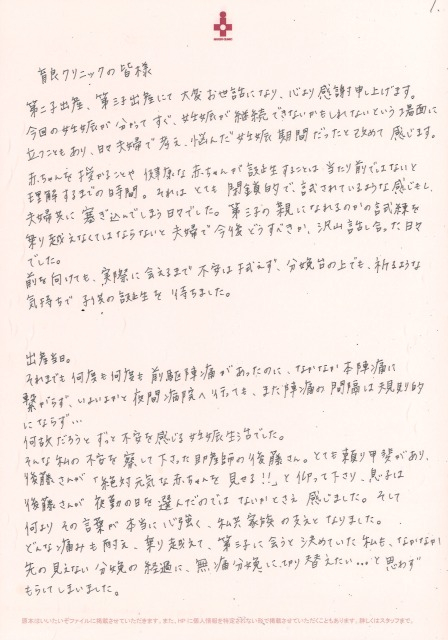 1.
育良クリニックの皆様
第二子出産、第三子出産にて大変お世話になり、心より感謝申し上げます。
今回の妊娠が分かってすぐ、妊娠が継続できないかもしれないという場面に
立つこともあり、日々夫婦で考え、悩んだ妊娠期間だったと改めて感じます。
赤ちゃんを授かることや健康な赤ちゃんが誕生することは当たり前ではないと
理解するまでの時間。それはとても閉鎖的で、試されているような感じもし、
夫婦共に塞ぎ込んでしまう日々でした。第三子の親になれるのかの試練を
乗り越えなくてはならないと夫婦で今後どうすべきか、沢山話し合った日々
でした。
前を向けても、実際に会えるまで不安は拭えず、分娩台の上でも、祈るような
気持ちで子供の誕生を待ちました。
出産当日。
それまでも何度も何度も前駆陣痛があったのに、なかなか本陣痛に
繋がらず、いよいよかと夜間病院へ行っても、また陣痛の間隔は不規則的
にならず…
何故だろうとずっと不安を感じる妊娠生活でした。
そんな私の不安を察して下さった助産師の後藤さん。とても頼り甲斐があり、
後藤さんが「絶対元気な赤ちゃんを見せる!!」と仰って下さり、息子は
後藤さんが夜勤の日を選んだのではないかとさえ感じました。そして
何よりその言葉が本当に心強く、私共家族の支えとなりました。
どんな痛みも耐え、乗り越えて、第三子に会うと決めていた私も、なかなか
先の見えない分娩の経過に、無痛分娩に切り替えたい…と思わず
もらしてしまいました。
原本はいいたいぞファイルに掲載させていただきます。また、HPに個人情報を特定されない形で掲載させていただくこともあります。詳しくはスタッフまで。